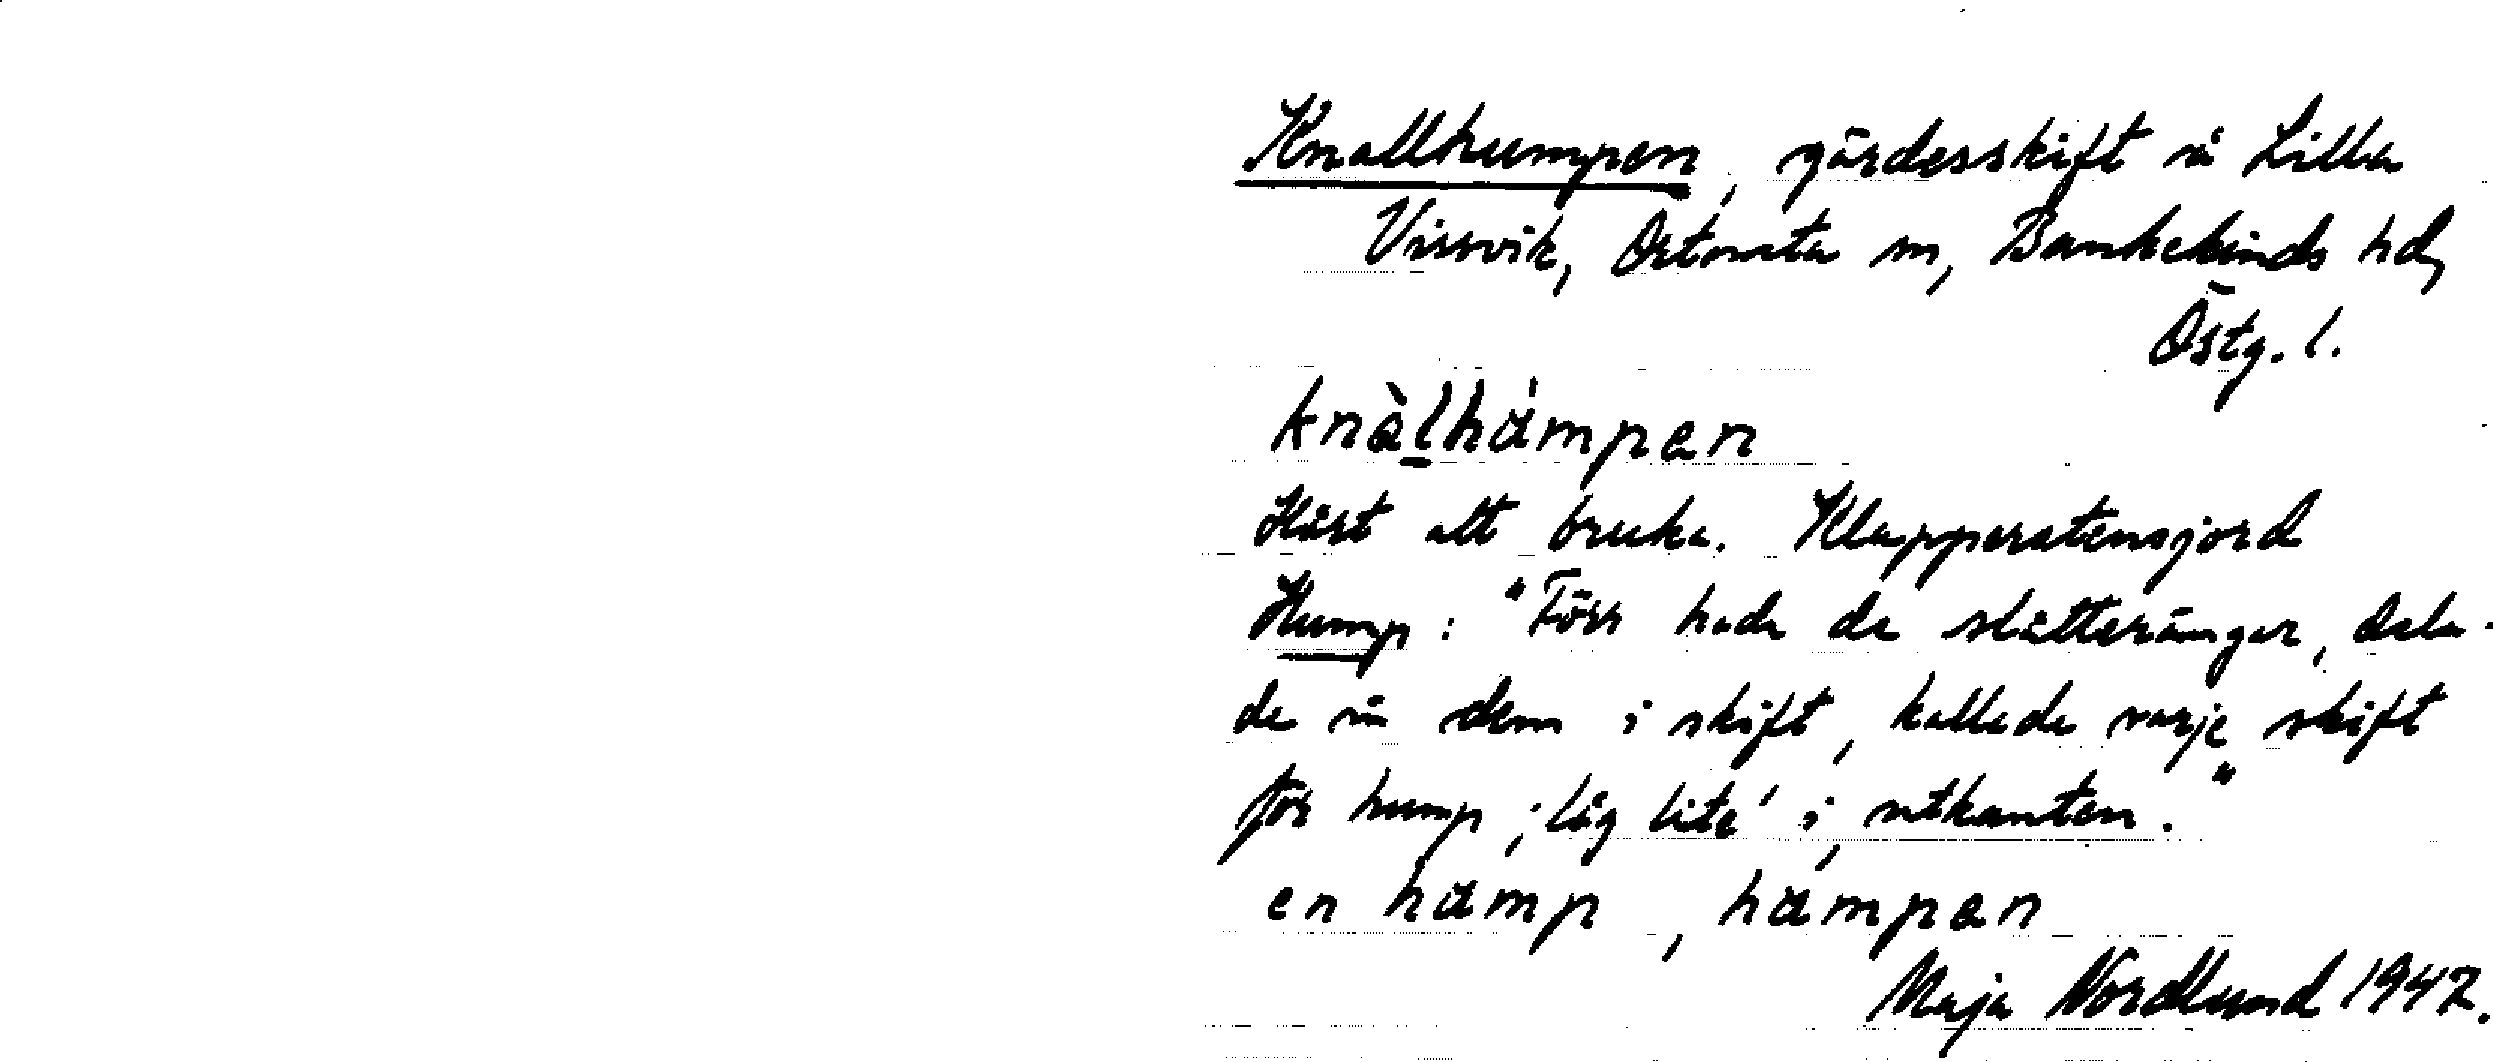 Knallhumpen, gärdesskift å Lilla
Vissvik, Örtomta sn, Bankekinds hd,
Östg. l.
knàlhámpen
Hårt att bruka. Klapperstensjord
Hump: "Förr hade de slåtterängar, dela-
de in dem i skift, kallade varje skift
för hump; låg lite' i utkanten."
en hamp, hámpen
Maja Nordlund 1947.